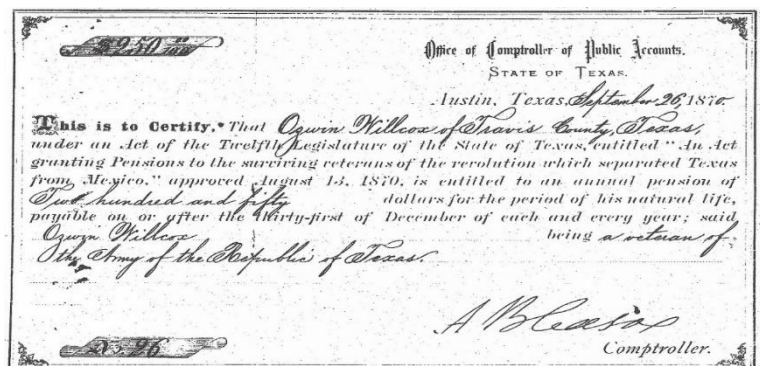 $250 00/100
Office of Comptroller of Public Accounts.
STATE OF TEXAS.
Austin, Texas, September 26, 1870
This is to Certify, That Ozwin Willcox of Travis County, Texas,
under an Act of the Twelfth Legislature of the State of Texas, entitled "An Act
granting Pensions to the surviving veterans of the revolution which separated Texas
from Mexico," approved August 13, 1870, is entitled to an annual pension of
Two hundred and fifty dollars for the period of his natural life,
payable on or after the thirty-first of December of each and every year; said
Ozwin Willcox being a veteran of
the Army of the Republic of Texas.
A Bledsoe
Comptroller.